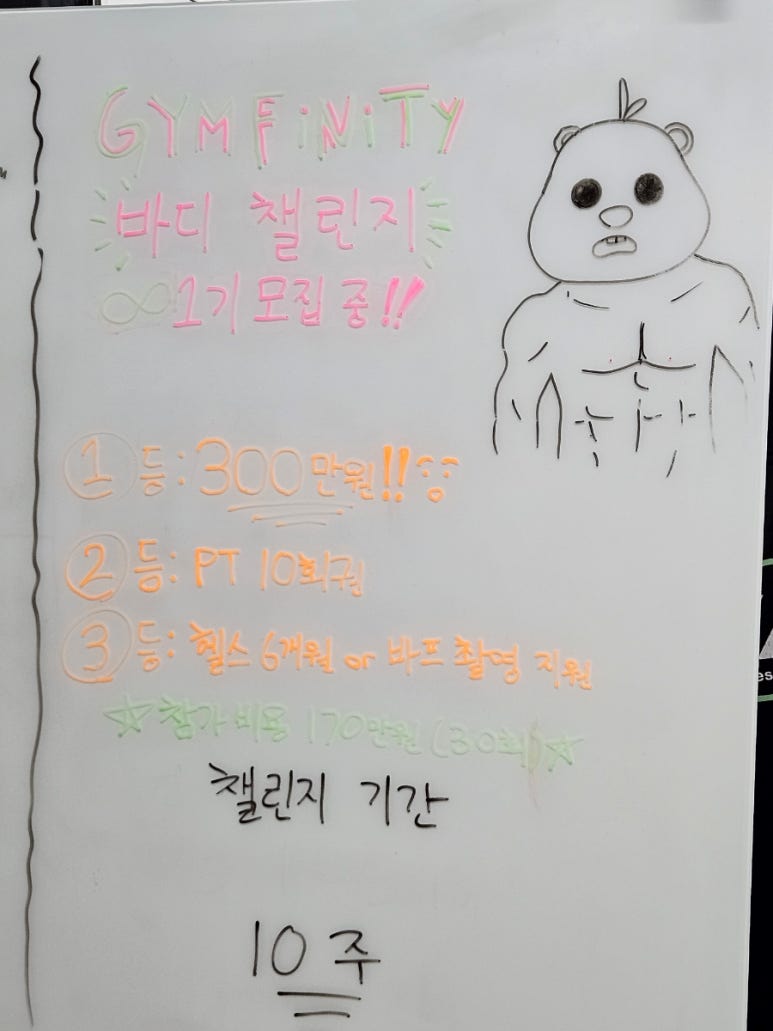 GYMFiNiTY
바디 챌린지
∞1기 모집 중!!
① 등: 300만원!!
② 등: PT 10회권
③ 등: 헬스 6개월 or 바프 촬영 지원
☆참가비용 170만원(30회)☆
챌린지 기간
10 주